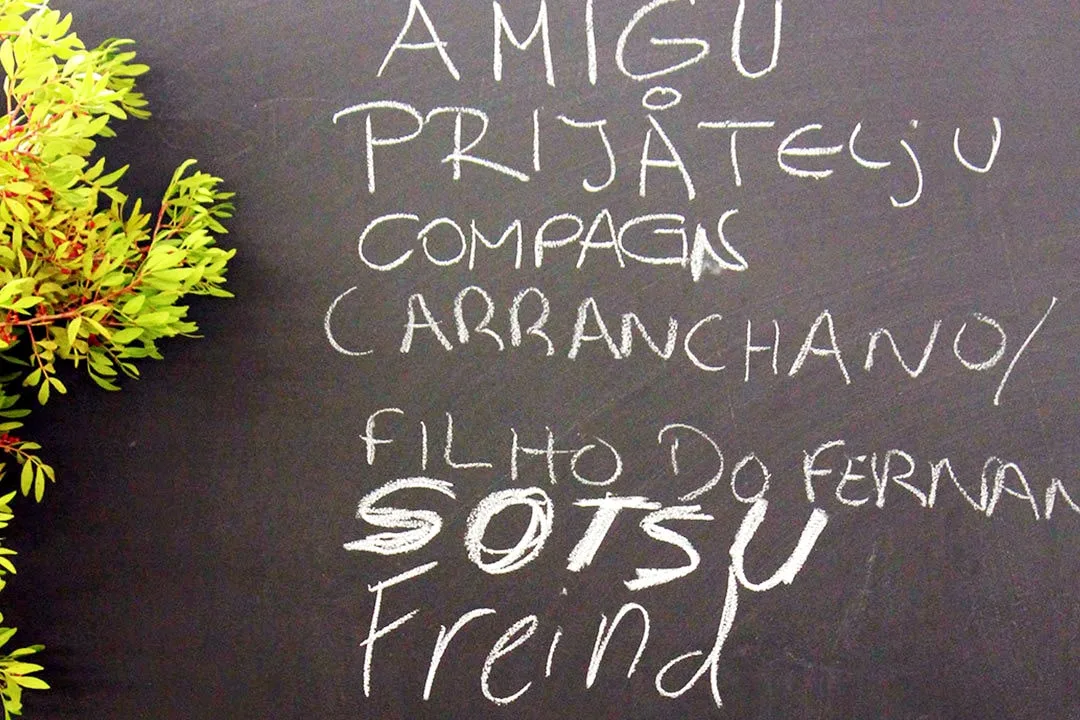 AMIGU
PRIJÅTELjU
COMPAGN
CARRANCHANO/
FILHO DO FERNAN
SOTSU
Freind